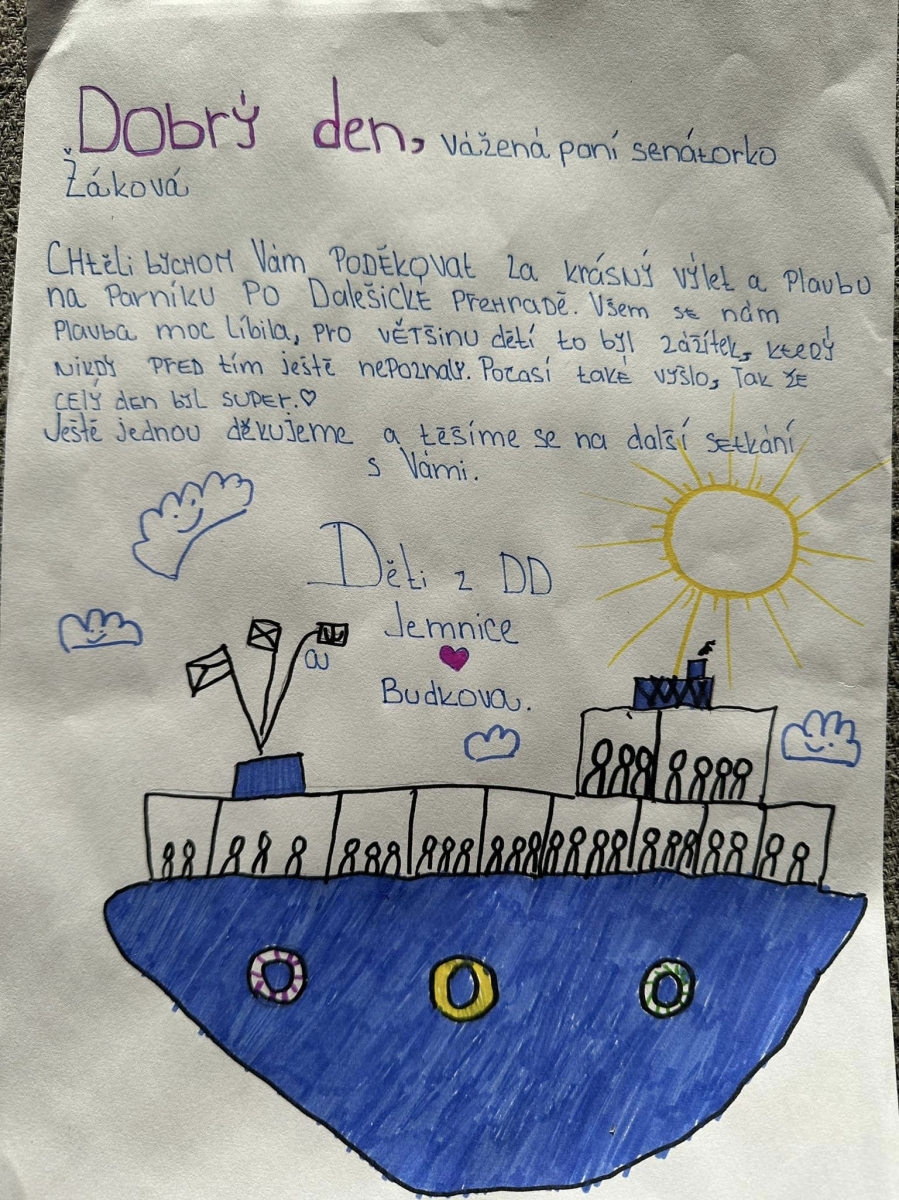 Dobrý den, vážená paní senátorko
Žáková
Chtěli bychom Vám poděkovat za krásný výlet a plavbu
na parníku po Dalešické přehradě. Všem se nám
plavba moc líbila, pro většinu dětí to byl zážitek, který
nikdy před tím ještě nepoznaly. Počasí také vyšlo, tak že
celý den byl super.♡
Ještě jednou děkujeme a těšíme se na další setkání
s Vámi.
Děti z DD
Jemnice
Budkova.